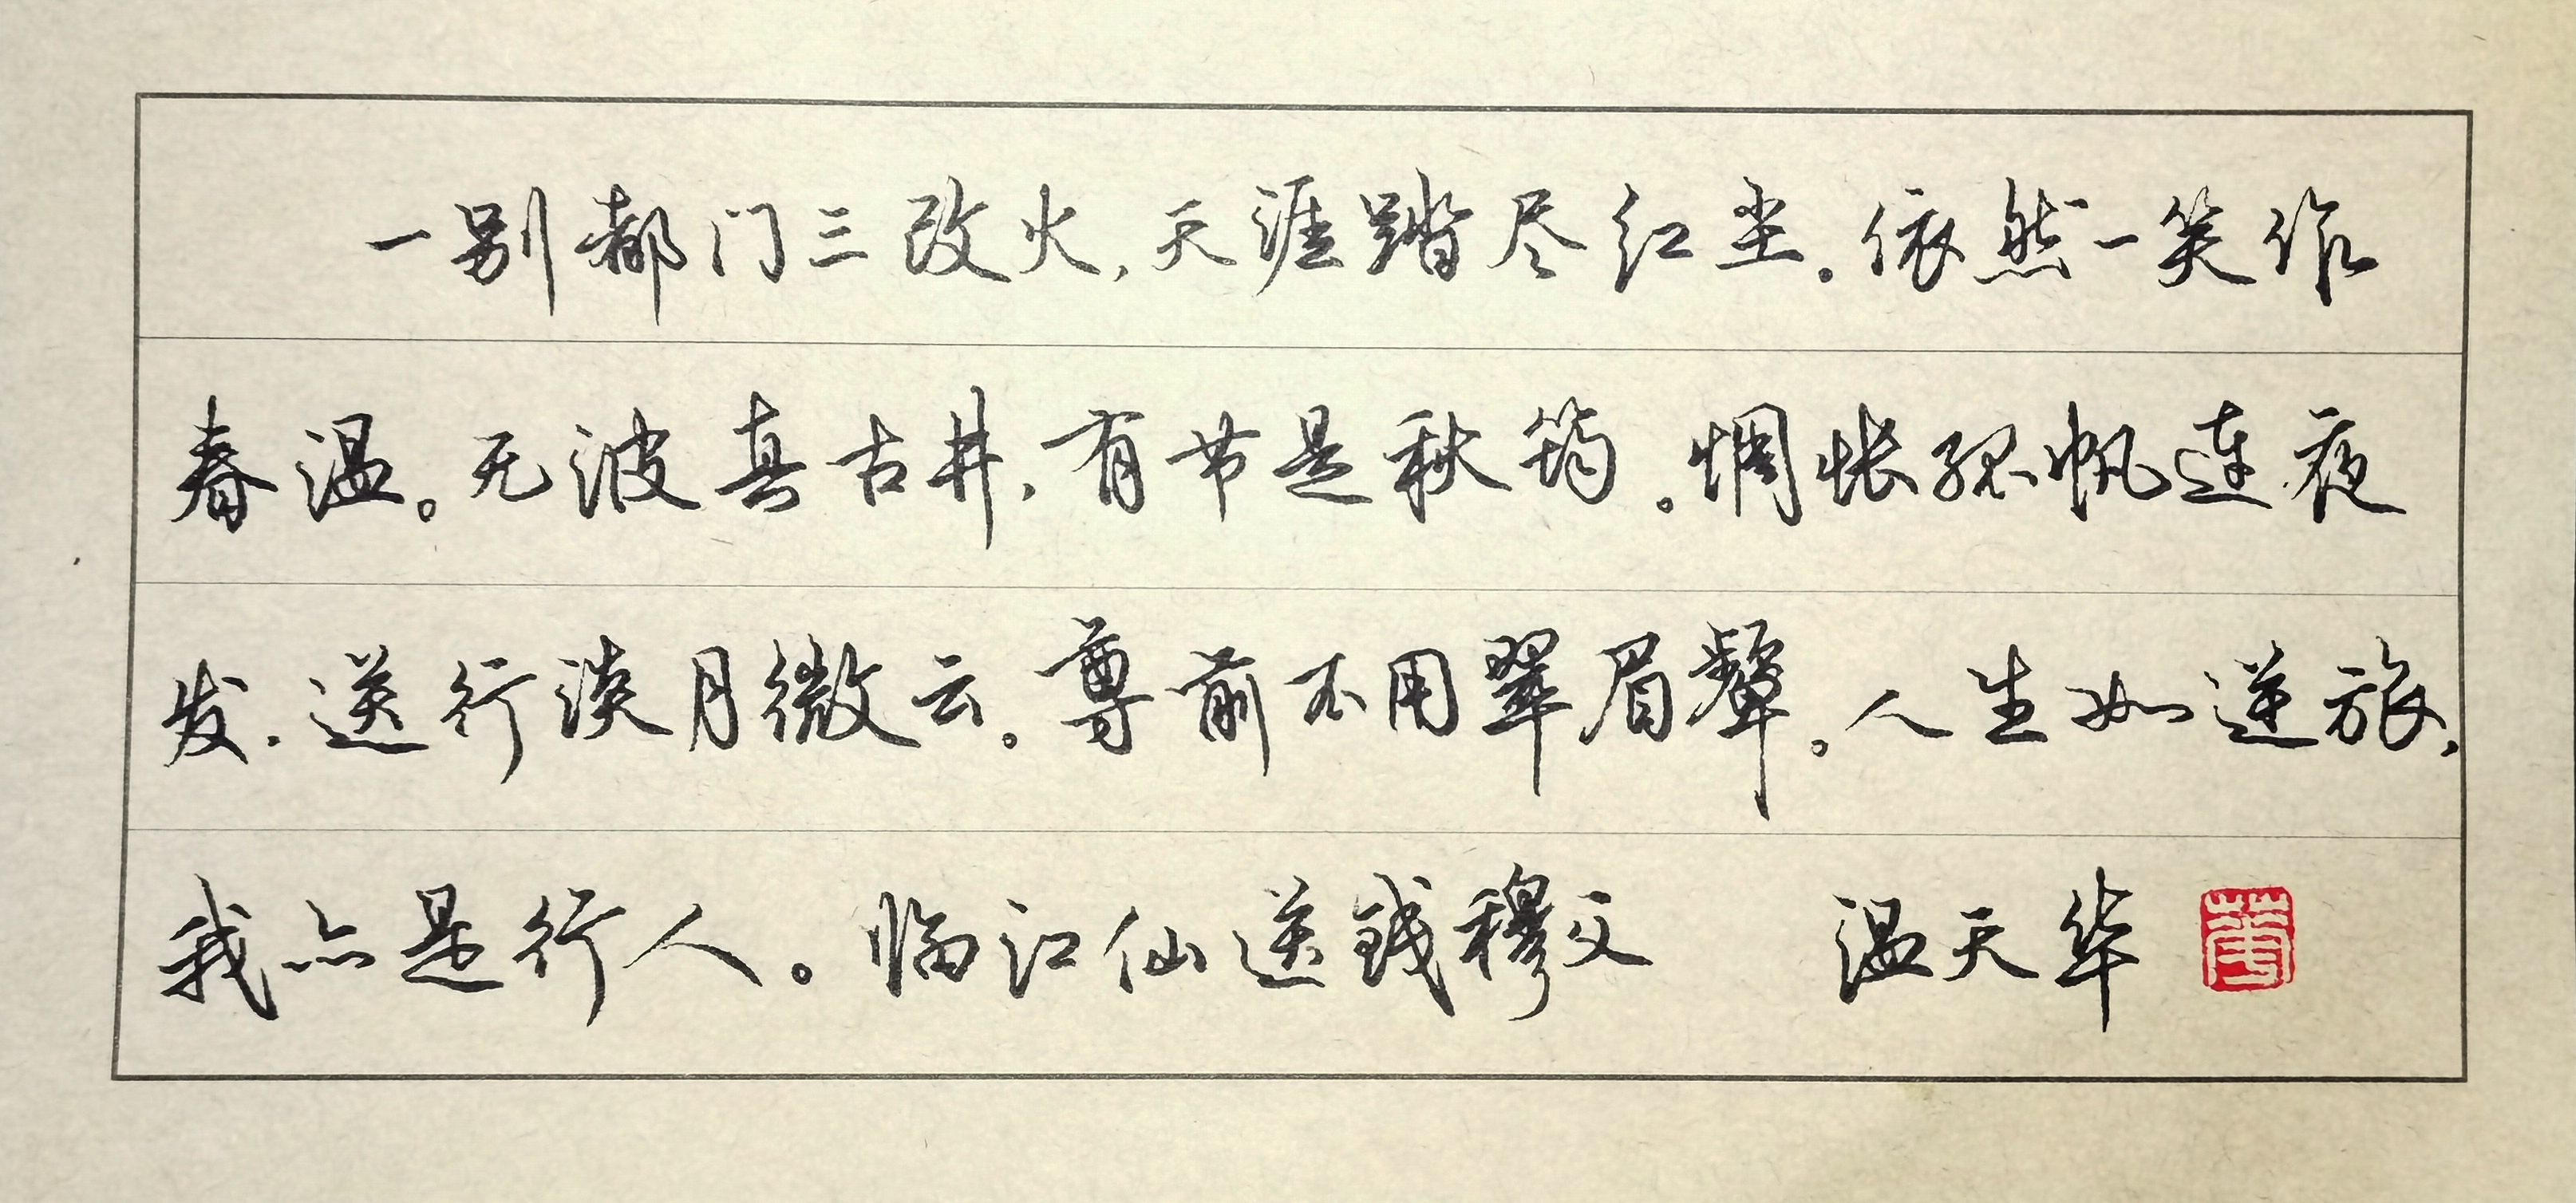 一别都门三改火，天涯踏尽红尘。依然一笑作
春温。无波真古井，有节是秋筠。惆怅孤帆连夜
发，送行淡月微云。尊前不用翠眉颦。人生如逆旅，
我亦是行人。临江仙送钱穆父 温天华
华